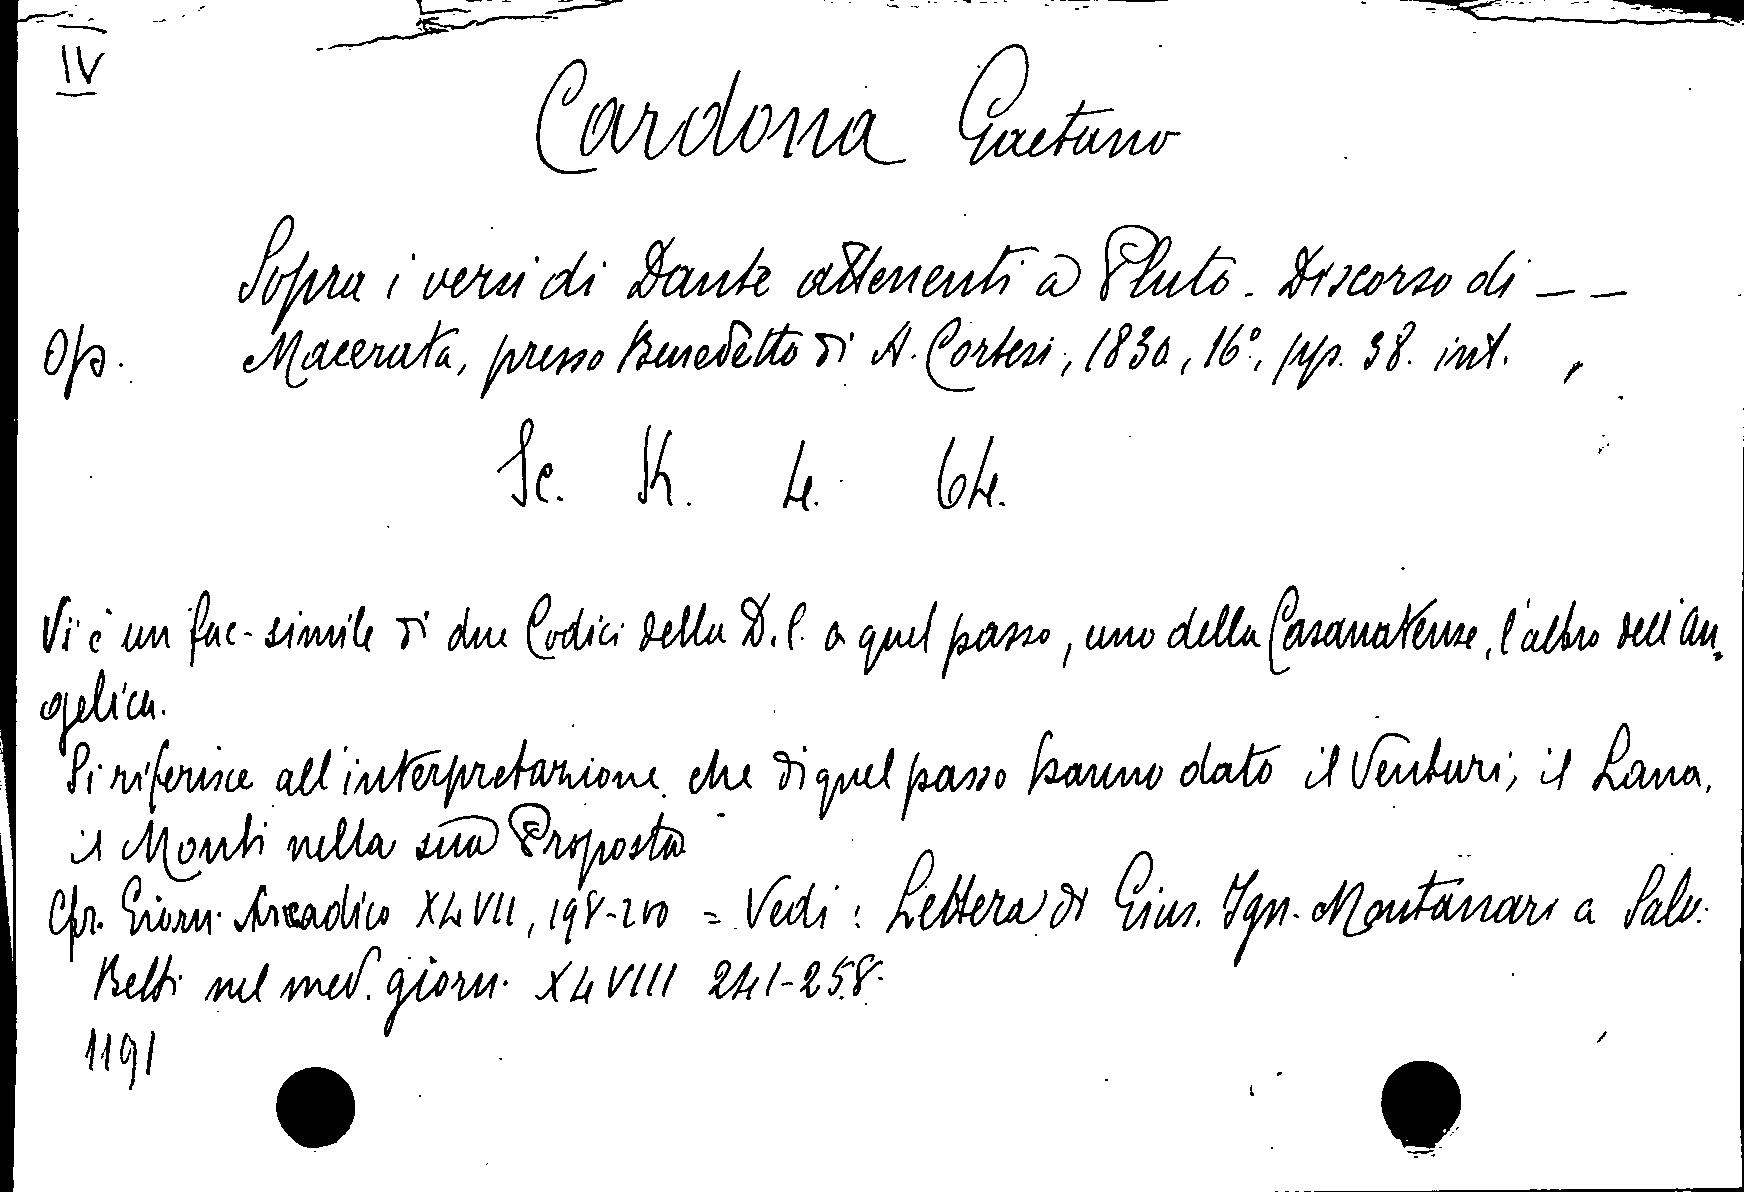 IV
Cardona Gaetano
Sopra i versi di Dante attenenti a Pluto. Discorso di _ _
Op. Macerata, presso Benedetto di A. Cortesi, 1830, 16°, pp. 38. int.
Sc. K. 4. 64.
Vi è un fac-simile di due Codici della D. C. a quel passo, uno della Casanatense, l'altro dell'An-
gelica.
Si riferisce all'interpretazione che di quel passo hanno dato il Venturi, il Lana,
il Monti nella sua Proposta
Cfr. Giorn. Arcadico XLVII, 198-200 = Vedi: Lettera di Gius. Ign. Montanari a Salv.
Betti nel med. giorn. XLVIII 241-258.
1191